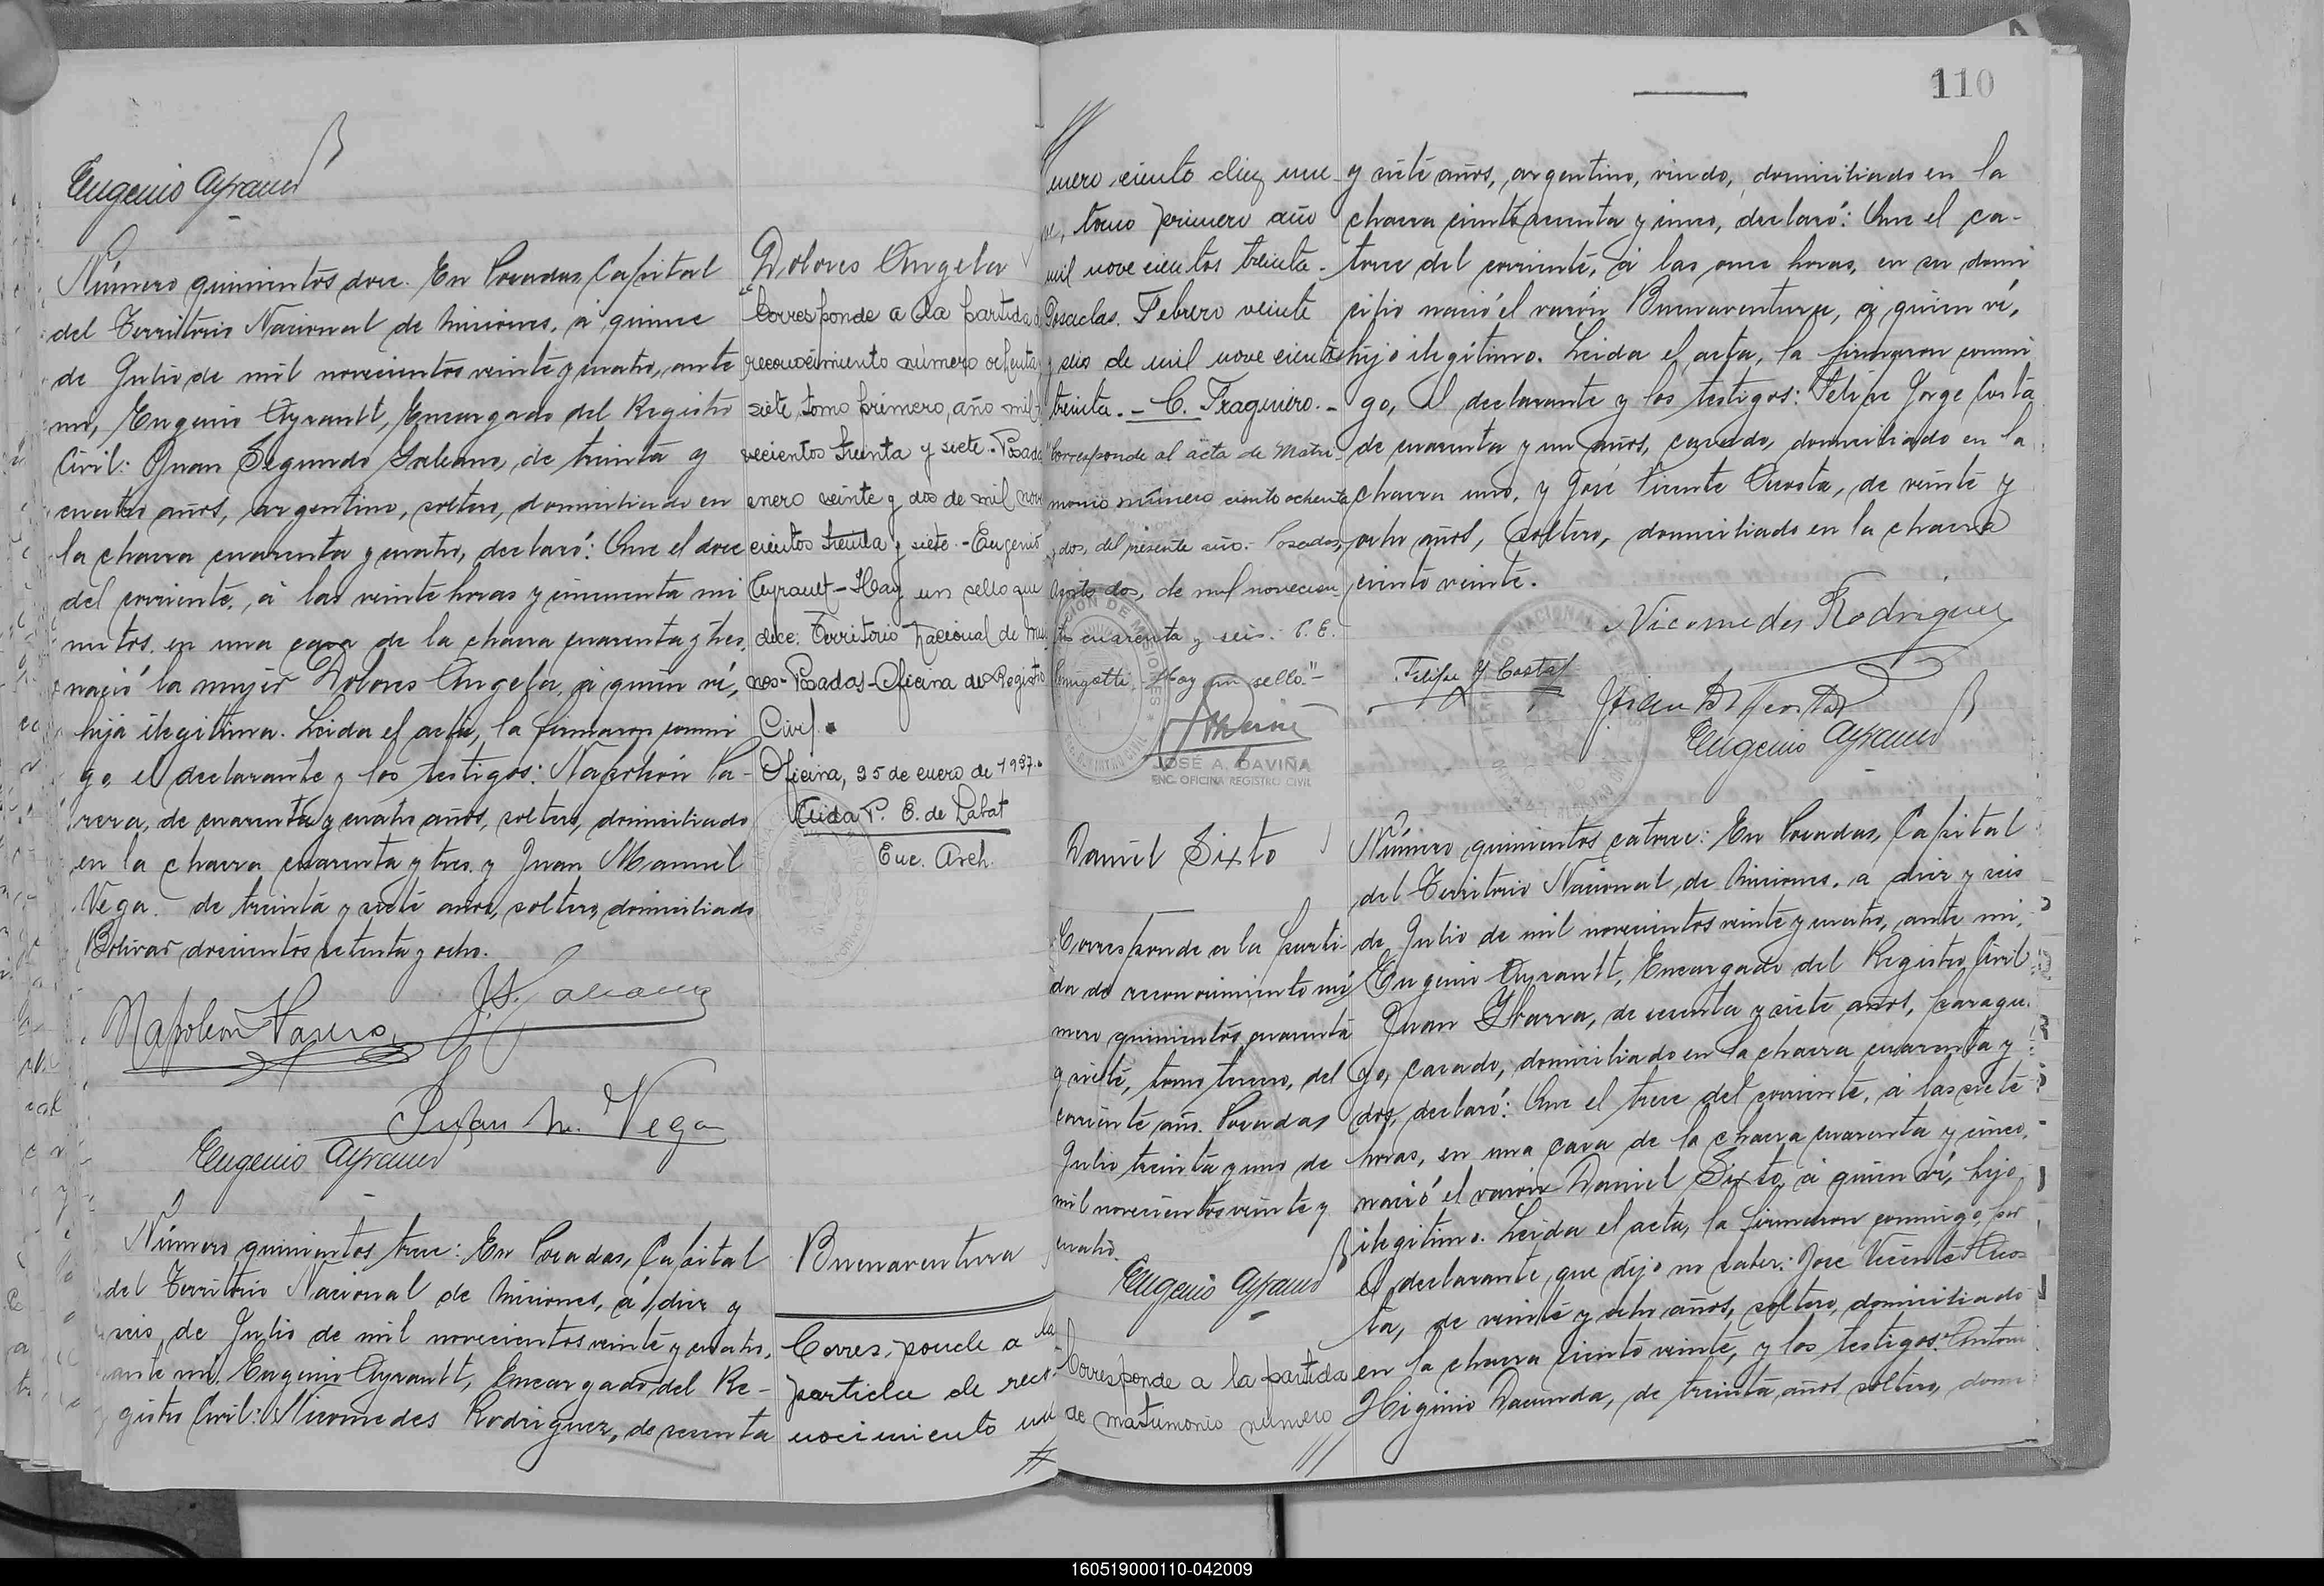 Eugenio Ayrault
Número quinientos doce. En Posadas, Capital
del Territorio Nacional de Misiones, á quince
de Julio de mil novecientos veinte y cuatro, ante
mí, Eugenio Ayrault, Encargado del Registro
Civil: Juan Segundo Galeano, de treinta y
cuatro años, argentino, soltero, domiciliado en
la chacra cuarenta y cuatro, declaró: Que el doce
del corriente, á las veinte horas y cincuenta mi
nutos, en una casa de la chacra cuarenta y tres,
nació la mujer Dolores Angela, á quien ví,
hija ilegítima. Leida el acta, la firmaron conmi
go, el declarante y los testigos: Napoleón Pa-
rera, de cuarenta y cuatro años, soltero, domiciliado
en la chacra cuarenta y tres, y Juan Manuel
Vega, de treinta y siete años, soltero, domiciliado
Bolivar doscientos setenta y ocho.
Napoleon Parera
J. S. Galeano
Juan M. Vega
Eugenio Ayrault
Número quinientos trece: En Posadas, Capital
del Territorio Nacional de Misiones, á diez y
seis de Julio de mil novecientos veinte y cuatro,
ante mí, Eugenio Ayrault, Encargado del Re-
gistro Civil: Nicomedes Rodriguez, de sesenta
Dolores Angela
"Corresponde a la partida de
reconocimiento número ochenta y
siete, tomo primero, año mil no-
vecientos treinta y siete.-Posadas
enero veinte y dos de mil nove
cientos treinta y siete.-Eugenio
Ayrault-Hay un sello que
dice: Territorio Nacional de Misio
nes-Posadas-Oficina del Registro
Civil.
Oficina, 25 de enero de 1937.
Aida P. E. de Labat
Enc. Arch.
Buenaventura
Corresponde a la
partida de reco-
nocimiento nú
110
mero ciento diez nue-
ve, tomo primero año
mil novecientos treinta.-
Posadas. Febrero veinte
y seis de mil novecientos
treinta.- C. Fraguero.-
"Corresponde al acta de Matri-
monio número ciento ochenta
y dos, del presente año.- Posadas,
Agosto dos, de mil novecien-
tos cuarenta y seis. P. E.
Hay un sello."-
JOSÉ A. DAVIÑA
ENC. OFICINA REGISTRO CIVIL
Daniel Sixto
Corresponde a la parti-
da de reconocimiento nú
mero quinientos cuarenta
y siete, tomo tercero, del
corriente año. Posadas
Julio treinta y uno de
mil novecientos veinte y
cuatro.
Eugenio Ayrault
Corresponde a la partida
de matrimonio número
y siete años, argentino, viudo, domiciliado en la
chacra ciento cuarenta y cinco, declaró: Que el ca-
torce del corriente, á las once horas, en su domi
cilio nació el varón Buenaventura, á quien ví,
hijo ilegítimo. Leida el acta, la firmaron conmi
go, el declarante y los testigos: Felipe Jorge Costa
de cuarenta y un años, casado, domiciliado en la
chacra uno, y José Vicente Acosta, de veinte y
ocho años, soltero, domiciliado en la chacra
ciento veinte.
Nicomedes Rodriguez
Felipe J Costa
Eugenio Ayrault
Número quinientos catorce: En Posadas, Capital
del Territorio Nacional de Misiones, a diez y seis
de Julio de mil novecientos veinte y cuatro, ante mí,
Eugenio Ayrault, Encargado del Registro Civil
Juan Ybarra, de sesenta y siete años, paragua
yo, casado, domiciliado en la chacra cuarenta y
dos, declaró: Que el trece del corriente, á las siete
horas, en una casa de la chacra cuarenta y cinco,
nació el varón Daniel Sixto, á quien ví, hijo
ilegítimo. Leida el acta, la firmaron conmigo, por
el declarante, que dijo no saber: José Vicente Acos-
ta, de veinte y ocho años, soltero, domiciliado
en la chacra ciento veinte, y los testigos: Antonio
Higinio Dacunda, de treinta años, soltero, domi
160519000110-042009